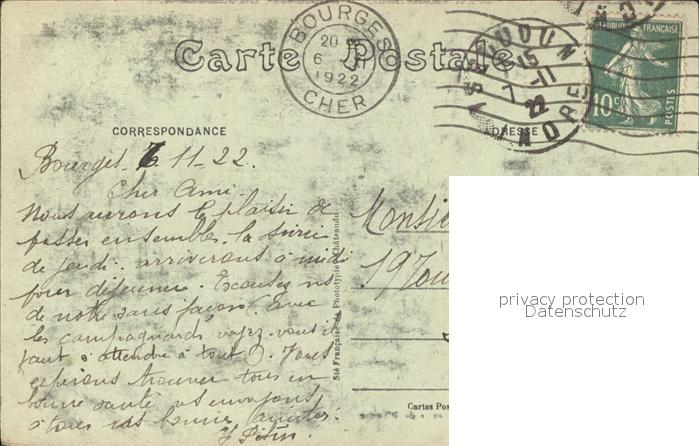 Carte Postale
BOURGES
20
6
1922
CHER
ISSOUDUN
15
7 -11
22
INDRE
RÉPUBLIQUE FRANÇAISE
10c
POSTES
CORRESPONDANCE
ADRESSE
Bourges 6 11-22.
Cher Ami
Nous aurons le plaisir de
passer ensemble la soirée
de jeudi. arriverons à midi
pour déjeuner. Excusez ns
de notre sans façon (avec
les campagnards voyez-vous il
faut s'attendre à tout). Nous
espérons trouver tous en
bonne santé et envoyons
à tous nos bonnes amitiés.
Monsie
19 Tou
Sté Française de Phototypie Châteaudu
Cartes Pos
privacy protection
Datenschutz